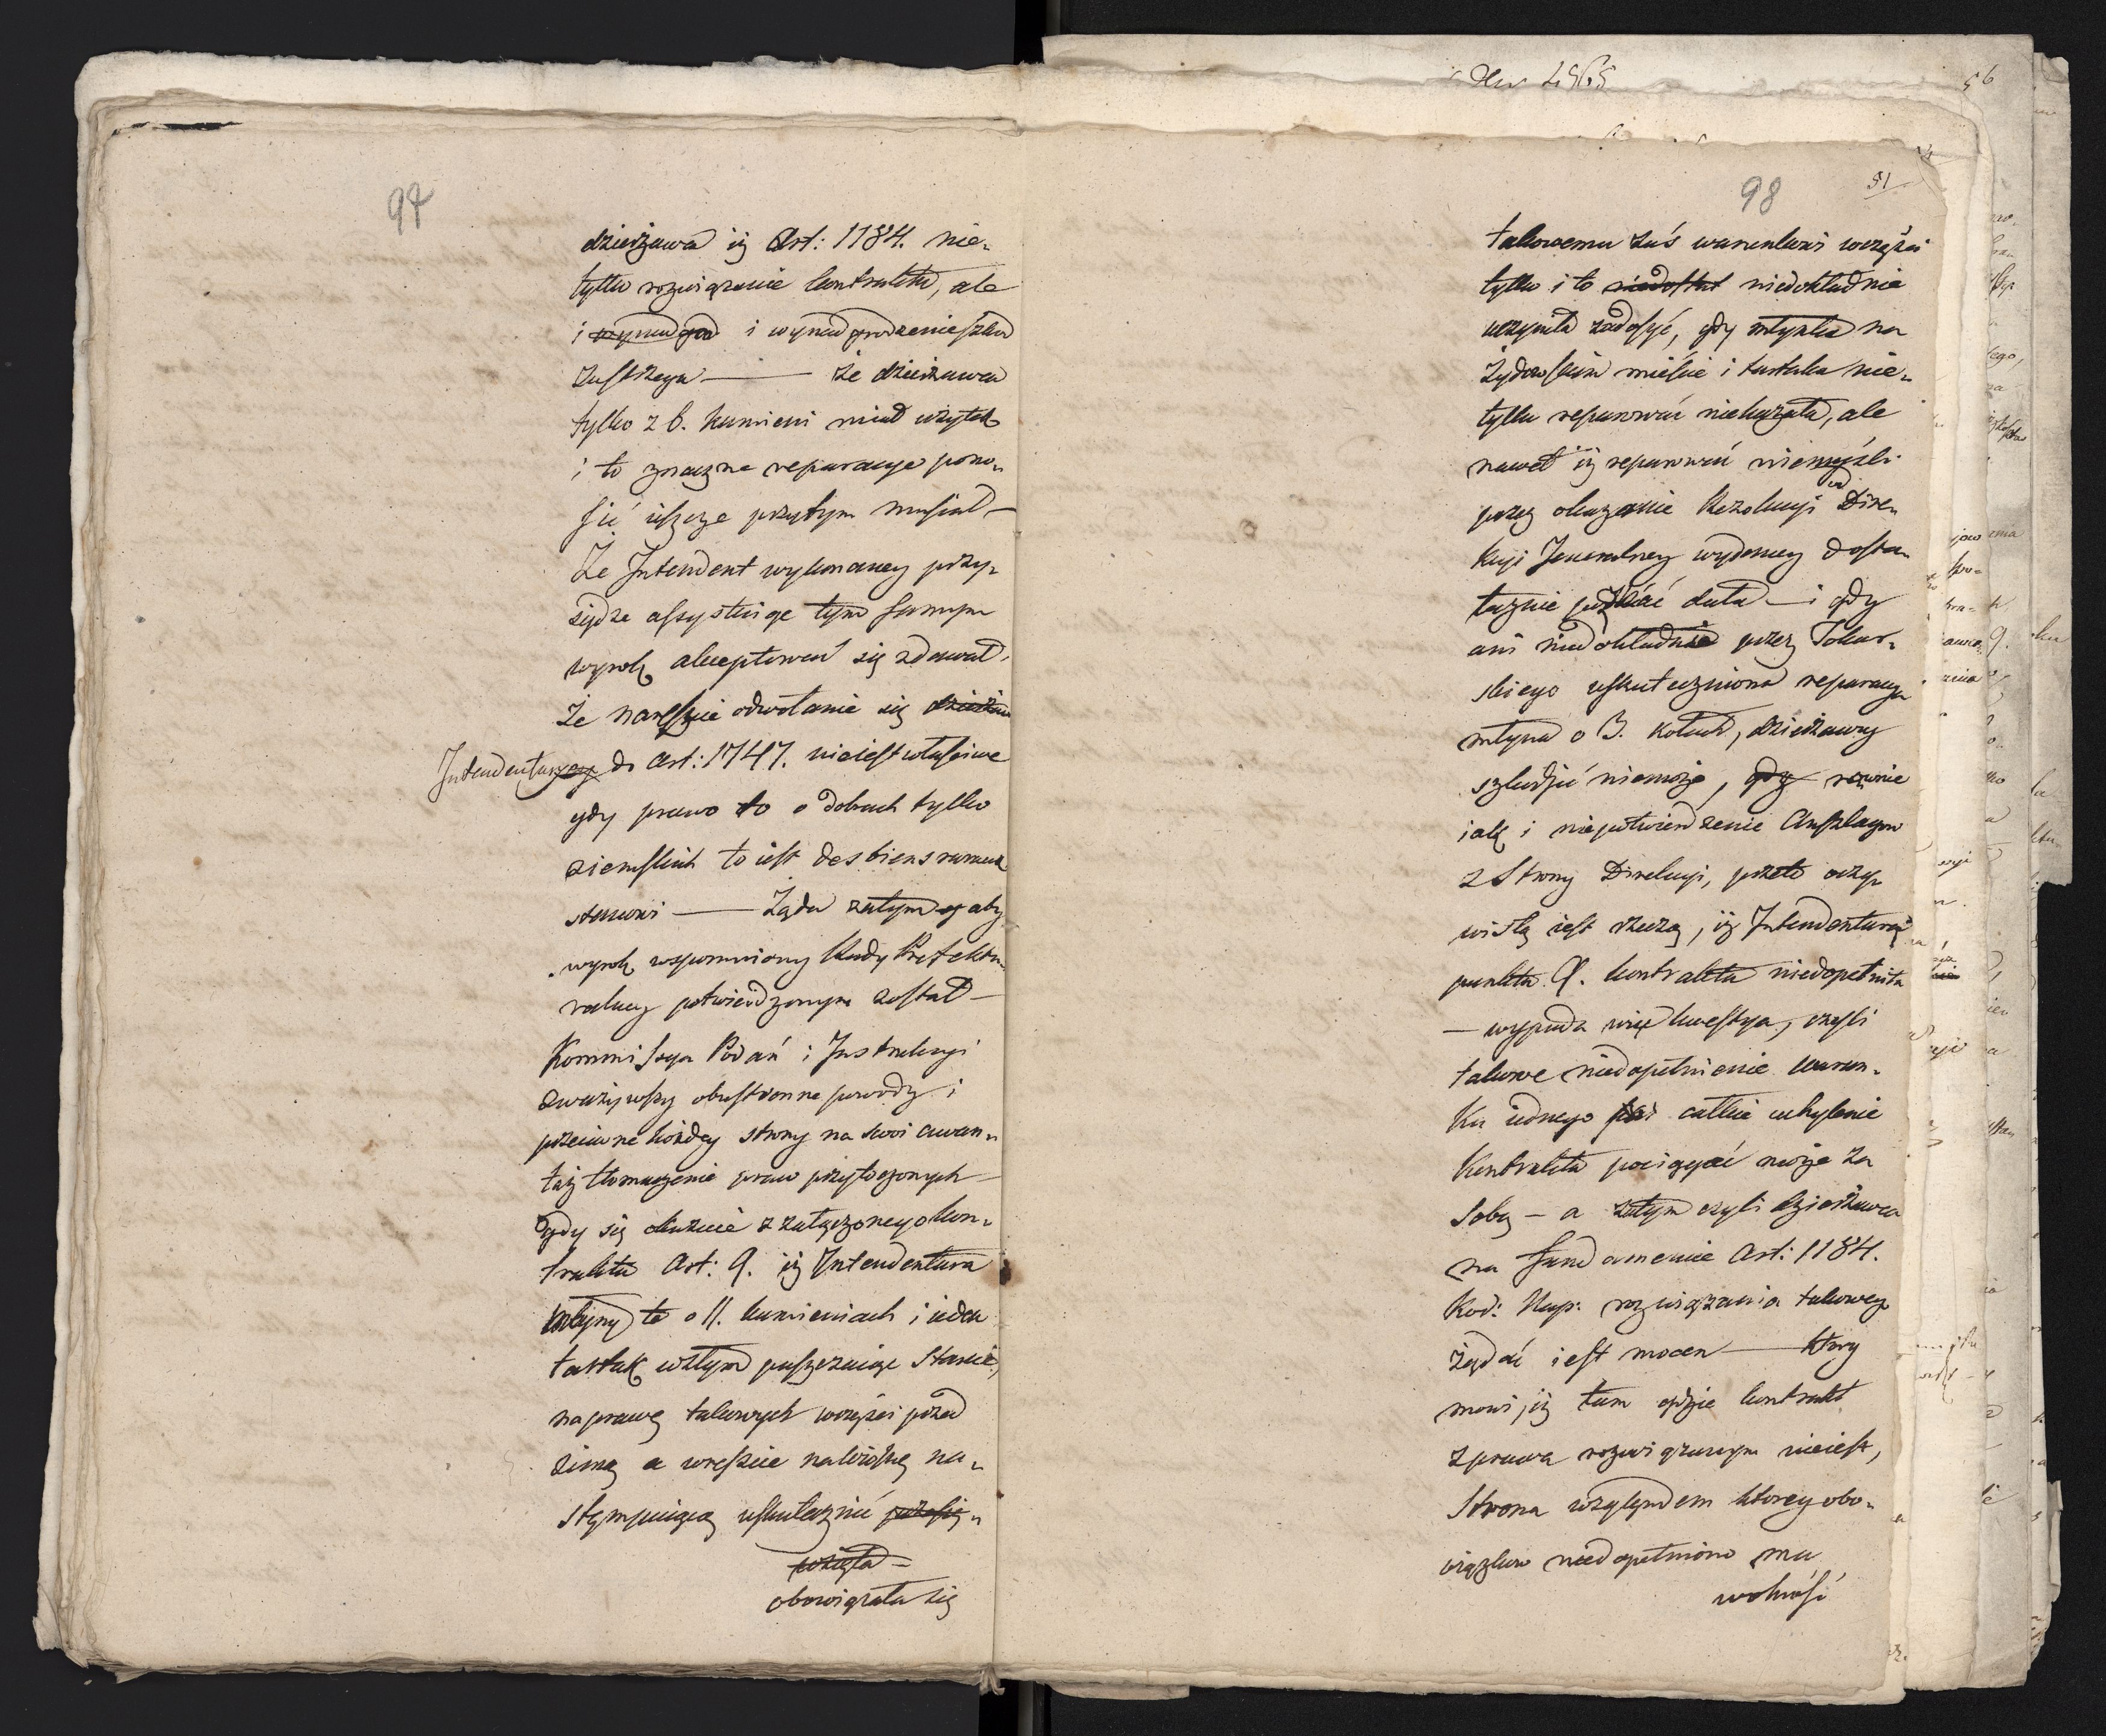 97
dzierżawca iż Art: 1184. nie„
tylko rozwiązanie kontraktu, ale
i wynadgrod i wynadgrodzenie szkod
zastrzega — że dzierżawca
tylko z 6. kamieni miał użytek
i to znaczne reparacye pono„
sić ieszcze przytym musiał —
Że Intendent wykonaney przy„
siędze assystuiąc tym samym
wyrok akceptować się zdawał,
że nareszcie odwołanie się
Intendentury do Art: 1747. nieiest właściwe
gdy prawo to o dobrach tylko
ziemskich to iest des biens ruraux
stanowi — Żąda zatym aby
wyrok wspomniony Rady Prefektu„
ralney potwierdzonym został —
Kommissya Podań i Instrukcyi
zważywszy obustronne powody i
przeciwne każdey strony na swoi awan„
taż tłomaczenie praw przytoczonych —
gdy się okazuie z załączonego kon„
traktu Art: 9. iż Intendentura
młyny te o 11. kamieniach i ieden
tartak w złym puszczaiąc stanie,
naprawę takowych w części przed
zimą a wreszcie na wiosnę na„
stępuiącą uskutecznić przesię„
wzięła —
obowiązała się
98
51
takowemu zaś warunkowi w części
tylko i to niedostat niedokładnie
uczyniła zadosyć, gdy młynka na
Żydowskim mieście i tartaka nie„
tylko reparować niekazała, ale
nawet iż reparować niemyśli
przez okazanie Rezolucyi od Dire„
kcyi Jeneralney wydaney dosta„
tecznie poznać dała — i gdy
ani niedokładnie przez Tokar„
skiego uskuteczniona reparacya
młyna o 3. kołach, dzierżawcy
szkodzić niemoże, gdy rownie
iak i niepotwierdzenie Anszlagow
z Strony Direkcyi, przeto oczy„
wistą iest rzeczą, iż Intendentura
punktu 9. kontraktu niedopełniła
— wypada więc kwestya, czyli
takowe niedopełnienie warun„
ku iednego całkie uchylenie
Kontraktu pociągać może za
sobą — a zatym czyli dzierżawca
na fundamencie Art: 1184.
Kod: Nap: rozwiązania takowego
żądać iest mocen — ktory
mowi, iż tam gdzie kontrakt
z prawa rozwiązanym nieiest,
Strona względem ktorey obo„
wiązkow niedopełniono ma
wolność
56